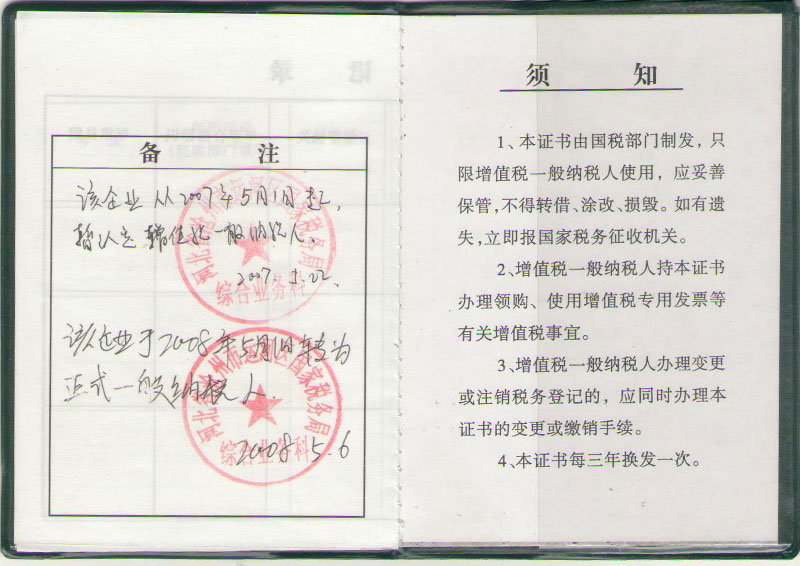 备 注
该企业从2007年5月1日起,
暂认定增值税一般纳税人。
2007.5.22.
该企业于2008年5月1日转为
正式一般纳税人.
2008.5.6
国家税务局
综合业务科
河北
州市运河区国家税务局
综合业务科
须 知
1、本证书由国税部门制发，只
限增值税一般纳税人使用，应妥善
保管，不得转借、涂改、损毁。如有遗
失，立即报国家税务征收机关。
2、增值税一般纳税人持本证书
办理领购、使用增值税专用发票等
有关增值税事宜。
3、增值税一般纳税人办理变更
或注销税务登记的，应同时办理本
证书的变更或缴销手续。
4、本证书每三年换发一次。